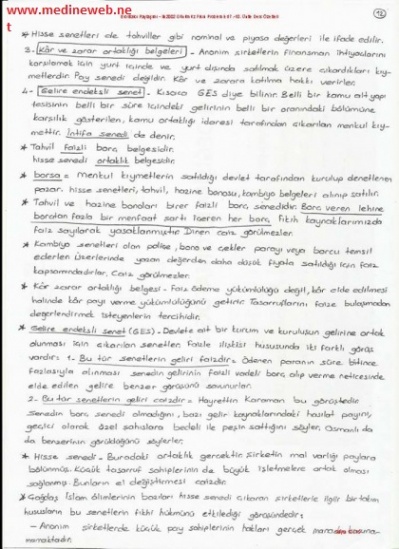 www.medineweb.ne
t
12
* Hisse senetleri de tahviller gibi nominal ve piyasa değerleri ile ifade edilir.
3. Kâr ve zarar ortaklığı belgeleri - Anonim şirketlerin finansman ihtiyaclarını
karşılamak için yurt içinde ve yurt dışında satılmak üzere çıkardıkları kıy-
metlerdir. Pay senedi değildir. Kâr ve zarara katılma hakkı verirler.
4- Gelire endeksli senet - Kısaca GES diye bilinir. Belli bir kamu alt yapı
tesisinin belli bir süre içindeki gelirinin belli bir oranındaki bölümüne
karşılık gösterilen, kamu ortaklığı idaresi tarafından çıkarılan menkul kıy-
mettir. İntifa senedi de denir.
* Tahvil faizli borç belgesidir.
hisse senedi ortaklık belgesidir.
* borsa = Menkul kıymetlerin satıldığı devlet tarafından kurulup denetlenen
pazar. hisse senetleri, tahvil, hazine bonosu, kambiyo belgeleri alınıp satılır.
* Tahvil ve hazine bonoları birer faizli borç senedidir. Borç veren lehine
borçtan fazla bir menfaat şartı içeren her borç, fıkıh kaynaklarımızda
faiz sayılarak yasaklanmıştır. Dinen caiz görülmezler.
* Kambiyo senetleri olan poliçe, bono ve çekler parayı veya borcu temsil
ederler üzerlerinde yazan değerden daha düşük fiyata satıldığı için faiz
kapsamındadırlar. Caiz görülmezler.
* Kâr zarar ortaklığı belgesi - Faiz ödeme yükümlülüğü değil, kâr elde edilmesi
halinde kâr payı verme yükümlülüğünü getirir. Tasarruflarını faize bulaşmadan
değerlendirmek isteyenlerin tercihidir.
* Gelire endeksli senet (GES) - Devlete ait bir kurum ve kuruluşun gelirine ortak
olunması için çıkarılan senetler. Faizle ilişkisi hususunda iki farklı görüş
vardır: 1. Bu tür senetlerin geliri faizdir = Ödenen paranın süre bitince
fazlasıyla alınması senedin gelirinin faizli vadeli borç alıp verme neticesinde
elde edilen gelire benzer görüşünü savunurlar.
2- Bu tür senetlerin geliri caizdir = Hayrettin Karaman bu görüştedir.
Senedin borç senedi olmadığını, bazı gelir kaynaklarındaki hasılat payını,
geçici olarak özel sahışlara bedeli ile peşin sattığını söyler. Osmanlı da
da benzerinin görüldüğünü söylerler.
* Hisse senedi - Buradaki ortaklık gerçektir. Şirketin mal varlığı paylara
bölünmüş. Küçük tasarruf sahiplerinin de büyük işletmelere ortak olması
sağlanmış. Bunların el değiştirmesi caizdir.
* Çağdaş İslam âlimlerinin bazıları hisse senedi çıkaran şirketlerle ilgili bir takım
hususların bu senetlerin fıkhi hükmünü etkilediği görüşündedir:
- Anonim şirketlerde küçük pay sahiplerinin hakları gerçek
mamaktadır.